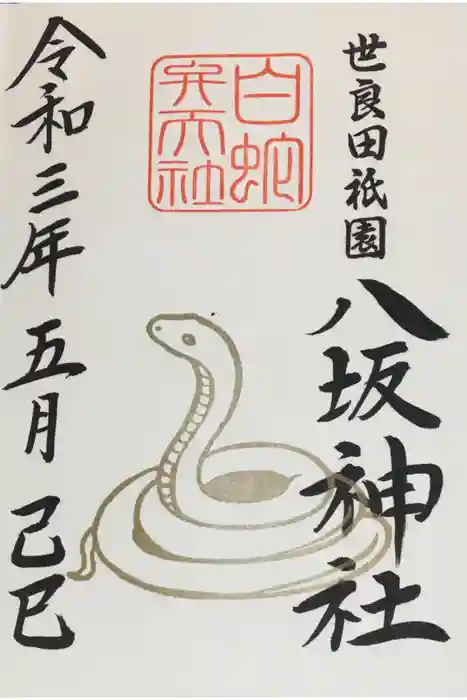 世良田祇園
八坂神社
白蛇
弁天社
令和三年 五月 己巳